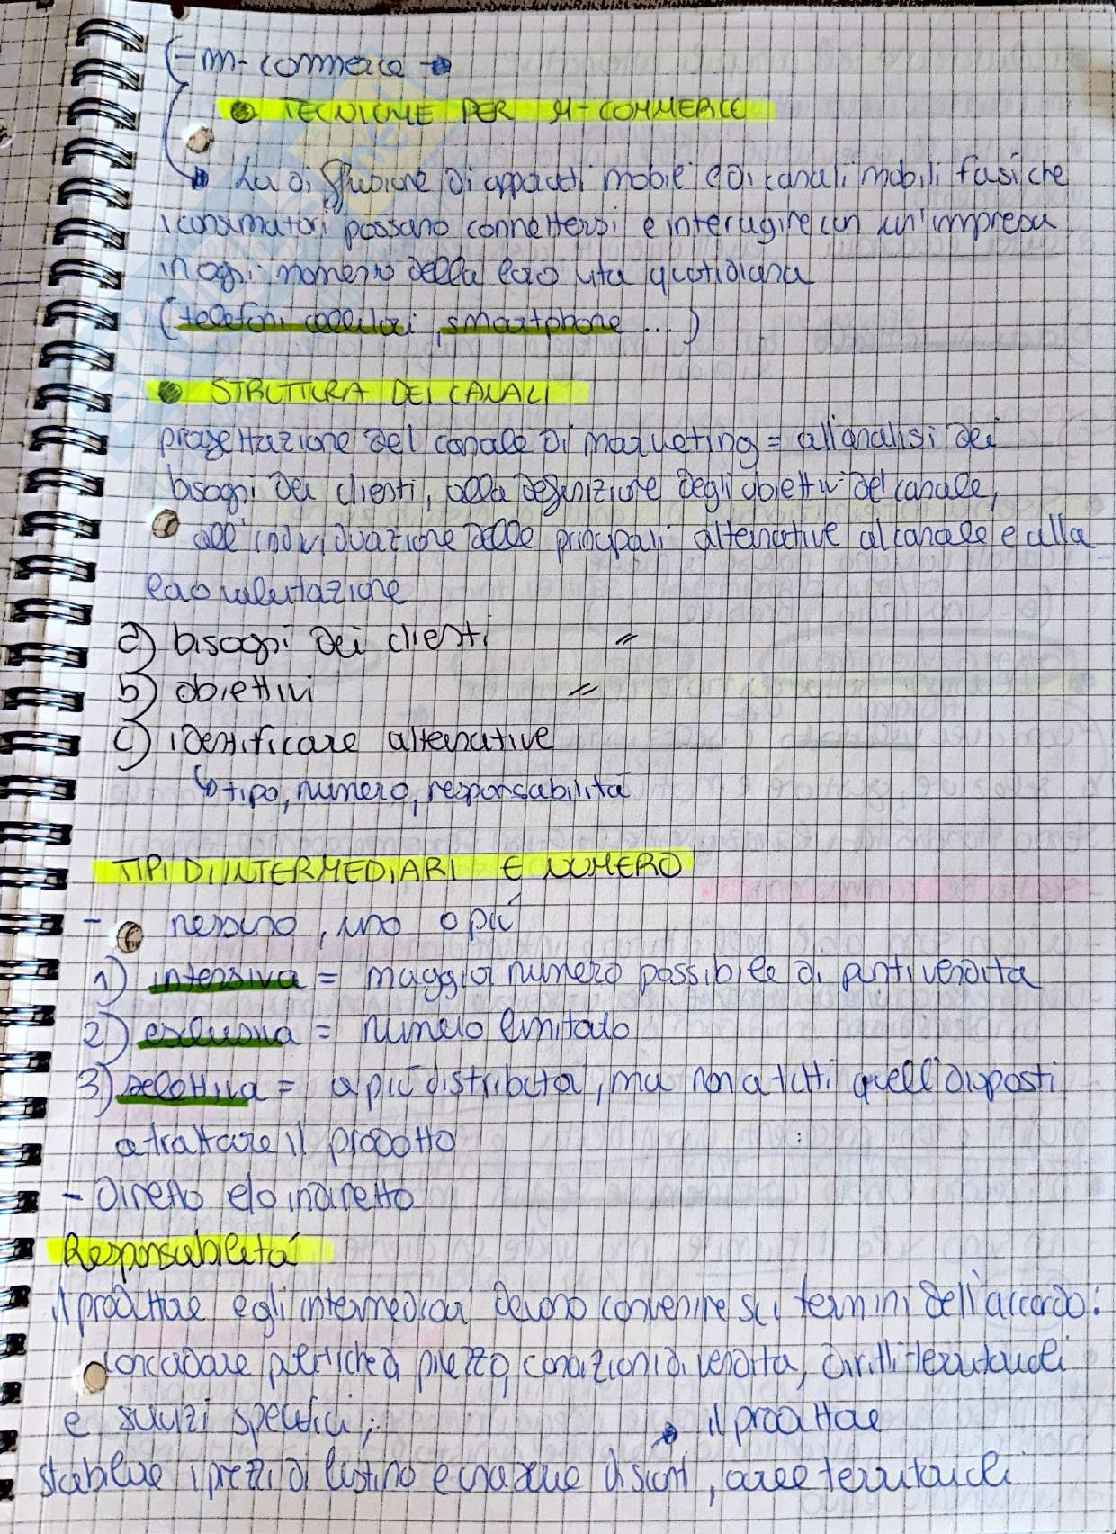 - m-commerce →
• TECNICHE PER M-COMMERCE
La diffusione di apparati mobile e di canali mobili fa sì che
i consumatori possano connettersi e interagire con un'impresa
in ogni momento della loro vita quotidiana
(telefoni cellulari, smartphone ...)
• STRUTTURA DEI CANALI
progettazione del canale di marketing = all'analisi dei
bisogni dei clienti, alla definizione degli obiettivi del canale,
all'individuazione delle principali alternative al canale e alla
loro valutazione
a) bisogni dei clienti =
b) obiettivi =
c) identificare alternative
↳ tipo, numero, responsabilità
TIPI DI INTERMEDIARI E NUMERO
- nessuno, uno o più
1) intensiva = maggior numero possibile di punti vendita
2) esclusiva = numero limitato
3) selettiva = a più distributori, ma non a tutti quelli disposti
a trattare il prodotto
- Diretto e/o indiretto
Responsabilità
il produttore e gli intermediari devono convenire sui termini dell'accordo:
concordare politiche di prezzo, condizioni di vendita, diritti territoriali
e servizi specifici;
→ il produttore
stabilire i prezzi di listino e praticare sconti, aree territoriali